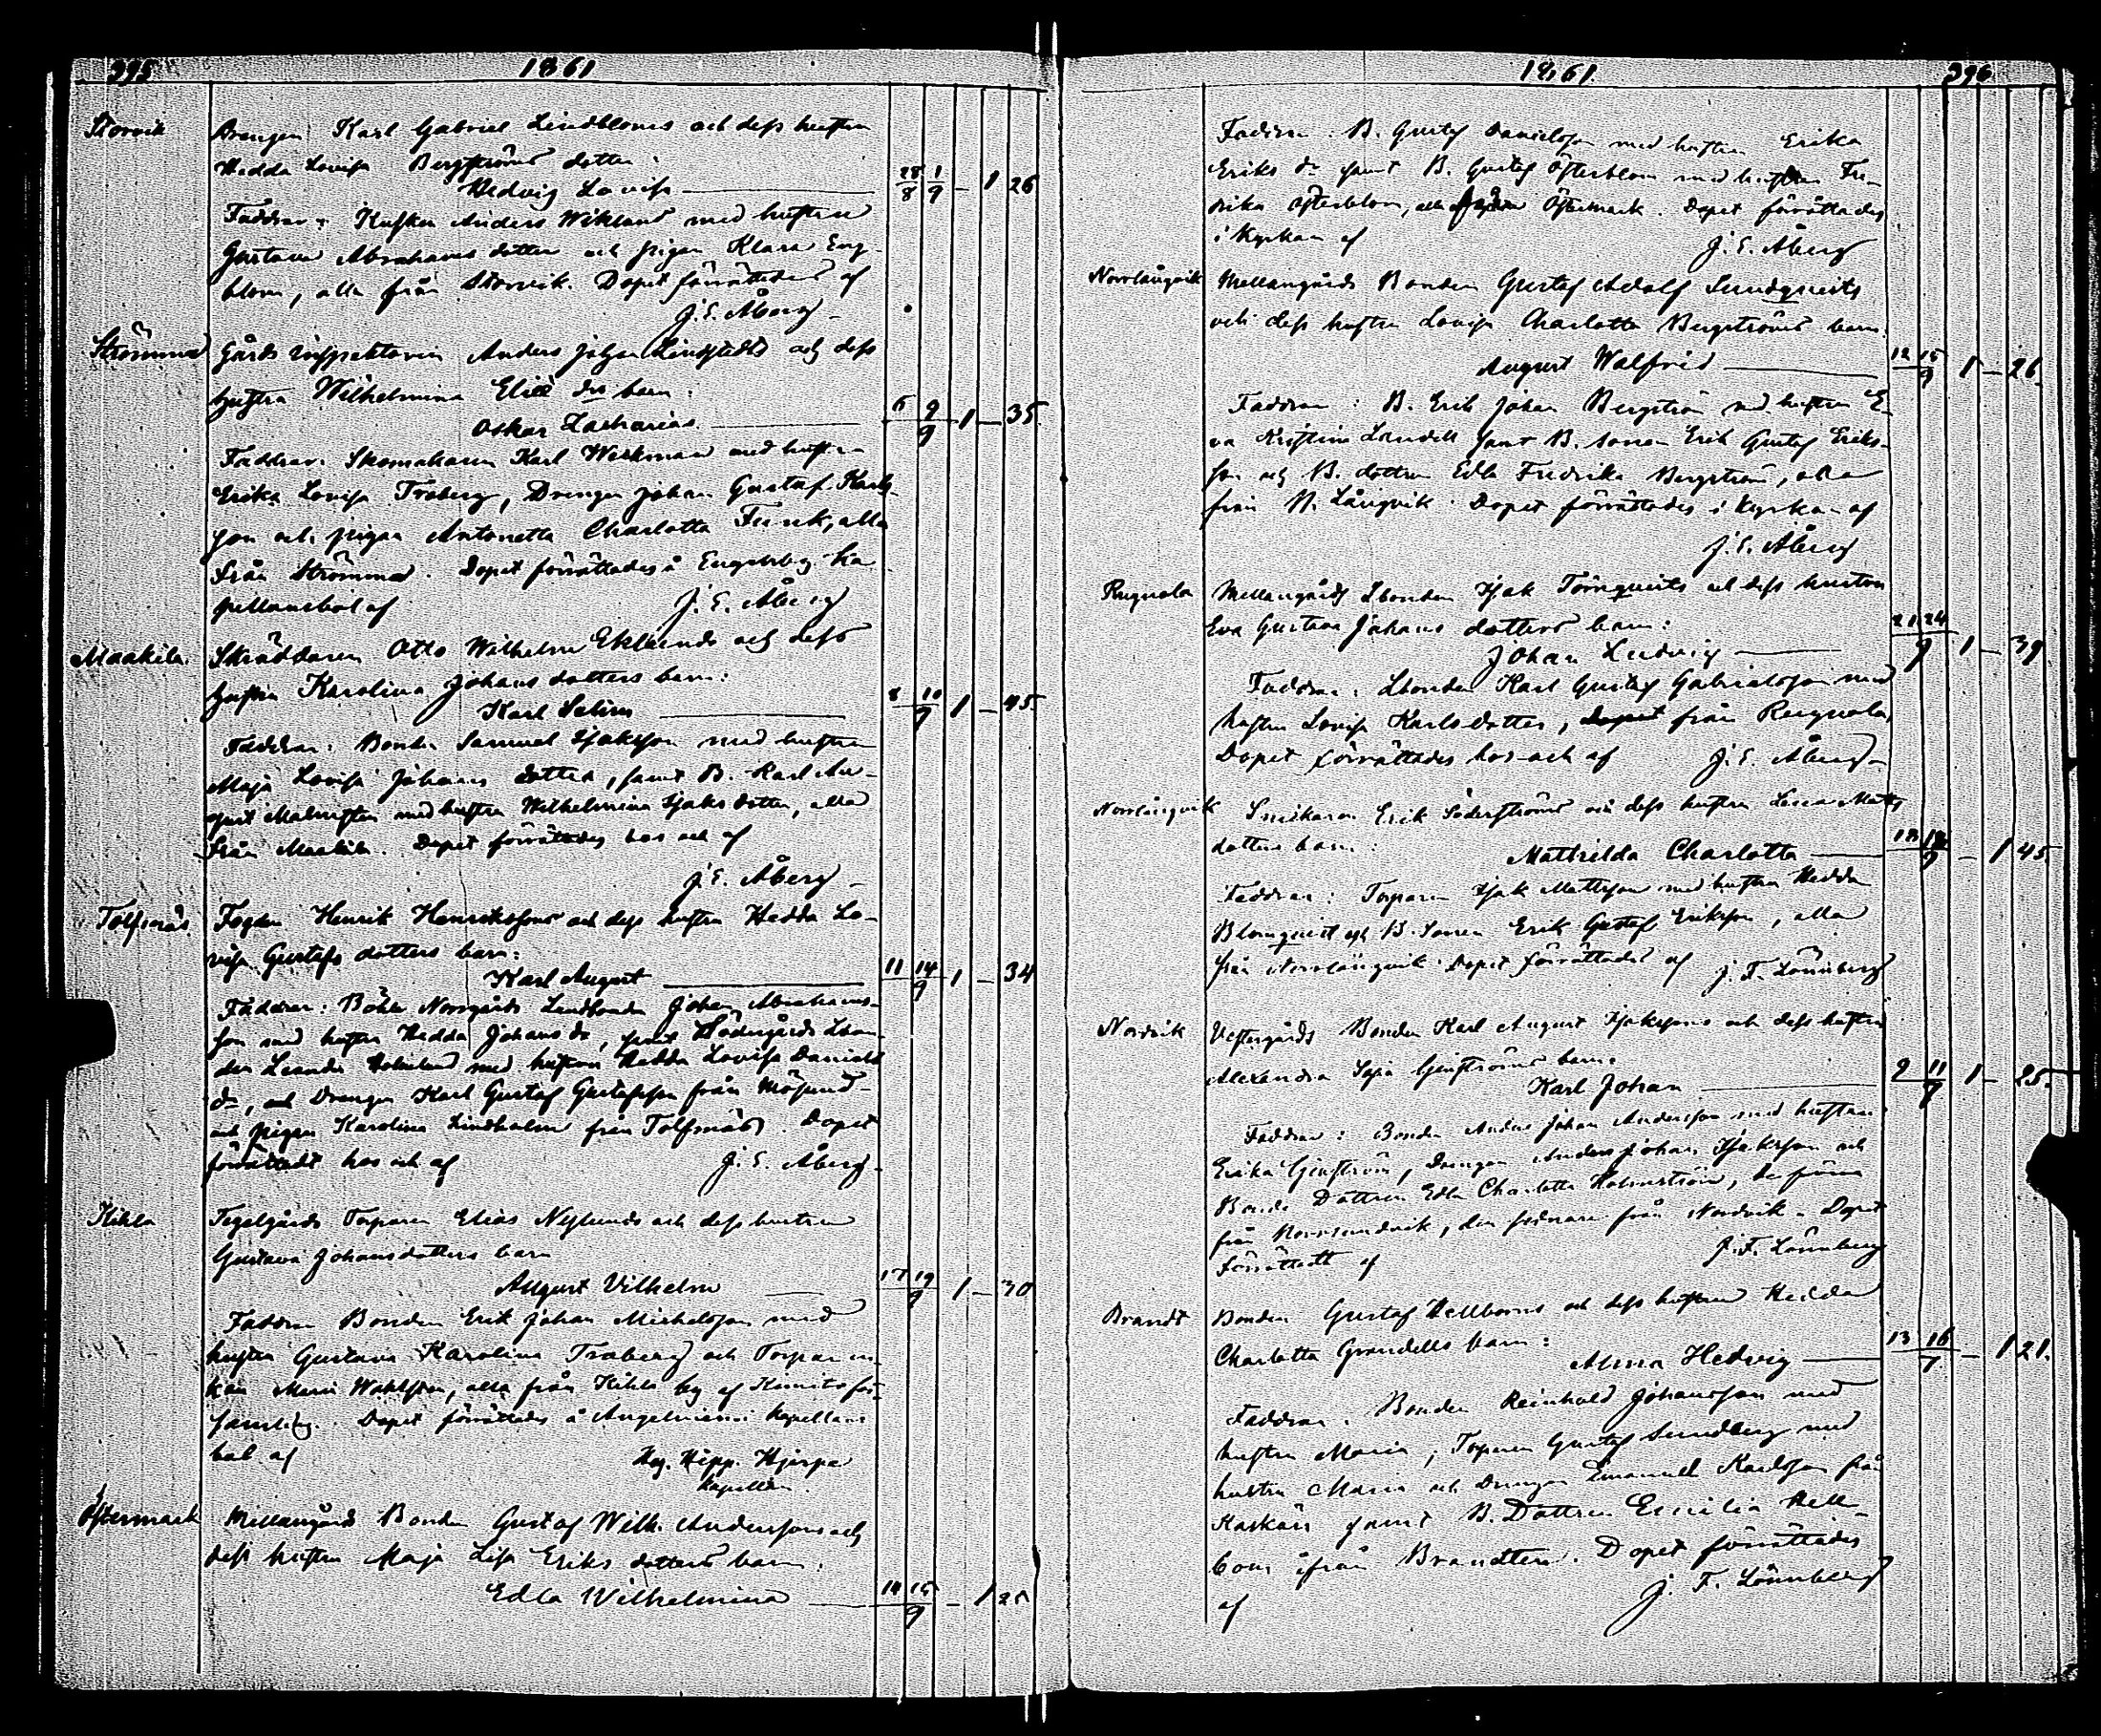 395 1861
Storvik Drengen Karl Gabriel Lindbloms och dess hustru
Hedda Lovisa Bergströms dotter
Hedvig Lovisa 28/8 1/9 — 1 26
Faddrar: Kusken Anders Wiklund med hustru
Gustava Abrahams dotter och pigan Klara Eng-
blom, alla från Storvik. Dopet förrättades af
J. E. Åberg
Strömma Gårds Inspektoren Anders Johan Lindstedts och dess
hustru Wilhelmina Eliæ drs barn:
Oskar Zacharias 6 9/9 1 — 35.
Faddrar: Skomakaren Karl Werkman med hustru
Erika Lovisa Troberg, Drengen Johan Gustaf Karls-
son och pigan Antonetta Charlotta Funk, alla
från Strömma. Dopet förrättades å Engelsby ka-
pellansbol af J. E. Åberg
Maakila. Skräddaren Otto Wilhelm Eklunds och dess
hustru Karolina Johans dotters barn:
Karl Selim 8 10/9 1 — 45.
Faddrar: Bonden Samuel Isaksson med hustru
Maja Lovisa Johans dotter, samt B. Karl Au-
gust Malmsten med hustru Wilhelmina Isaks dotter, alla
från Maakila. Dopet förrättades hos och af
J. E. Åberg
Tolfsnäs. Fogden Henrik Henrikssons och dess hustru Hedda Lo-
visa Gustafs dotters barn:
Karl August 11 14/9 1 — 34
Faddrar: Böhle Norrgårds Landbonden Johan Abrahams-
son med hustru Hedda Johans dr, samt Södergårds Lbon-
den Leander med hustrun Hedda Lovisa Daniels
dr, och Drengen Karl Gustaf Gustafsson från Mösund
och pigan Karolina Lindholm från Tolfsnäs. Dopet
förrättadt hos och af J. E. Åberg.
Kihla Tegelgårds Torparen Elias Nylunds och dess hustru
Gustava Johansdotters barn
August Vilhelm 17 19/9 1 — 30
Faddrar Bonden Erik Johan Michelsson med
hustru Gustava Karolina Troberg och Torparen-
kan Maria Wahlsten, alla från Kihla by af Kimito för-
samling. Dopet förrättades å Angelniemi Kapellans
bol af Hipp. Hjerpe
Kapellan.
Östermark Mellangårds Bonden Gustaf Wilh. Anderssons och
dess hustru Maja Lisa Eriks dotters barn:
Edla Wilhelmina 14 15/9 — 1 25
1861 396
Faddrar: B. Gustaf Danielsson med hustru Erika
Eriks dr samt B. Gustaf Österblom med hustru Fre-
drika Österblom, alla från Östermark. Dopet förrättades
i Kyrkan af J. E. Åberg
Norrlångvik Mellangårds Bonden Gustaf Adolf Sundqvists
och dess hustru Lovisa Charlotta Bergströms barn.
August Walfrid 12 15/9 1 — 26.
Faddrar: B. Erik Johan Bergström med hustru E-
va Kristina Lundell samt B. sonen Erik Gustaf Eriks-
son och B. dottren Edla Fredrika Bergström, alla
från N. Långvik. Dopet förrättades i Kyrkan af
J. E. Åberg
Rugnola Mellangårds Lbonden Isak Törnqvists och dess hustru
Eva Gustava Johans dotters barn:
Johan Ludvig 21 24/9 1 — 39
Faddrar: Lbonden Karl Gustaf Gabrielsson med
hustru Lovisa Karlsdotter, från Rugnola,
Dopet förrättades hos och af J. E. Åberg
Norrlångvik Snickaren Erik Söderströms och dess hustru Lena Matts
dotters barn: Mathilda Charlotta — 1 45.
Faddrar: Torparen Isak Mattsson med hustru Hedda
Blomqvist och B. Sonen Erik Gustaf Eriksson, alla
från Norrlångvik. Dopet förrättades af J. F. Lönnberg
Nordvik Vestergårds Bonden Karl August Isakssons och dess hustru
Alexandra Sofia Genströms barn:
Karl Johan 2 11/9 1 — 25.
Faddrar: Bonden Anders Johan Andersson med hustru
Erika Genström, Drengen Anders Johan Isaksson och
Bonde Dottren Edla Charlotta Holmström, de förra
från Norrsundvik, den sednare från Nordvik. Dopet
förrättadt af J. F. Lönnberg
Brandt Bonden Gustaf Hellboms och dess hustru Hedda
Charlotta Grandells barn:
Alma Hedvig 13 16/7 — 1 21.
Faddrar: Bonden Reinhold Johansson med
hustru Maria, Torparen Gustaf Sundberg med
hustru Maria och Drengen Emanuel Karlsson från
Kaskärs samt B. Dottren Emilia Hell-
bom ifrån Brandten. Dopet förrättades
af J. F. Lönnberg